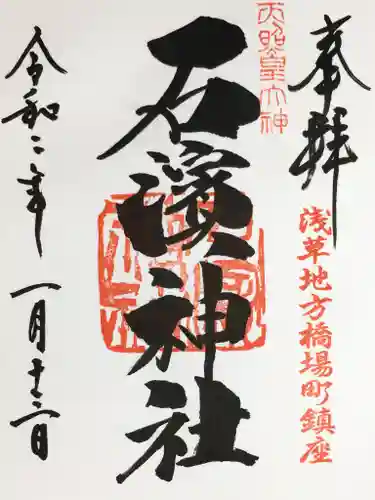 奉拝
浅草地方橋場町鎮座
天照皇大神
石濱神社
令和二年
一月十三日